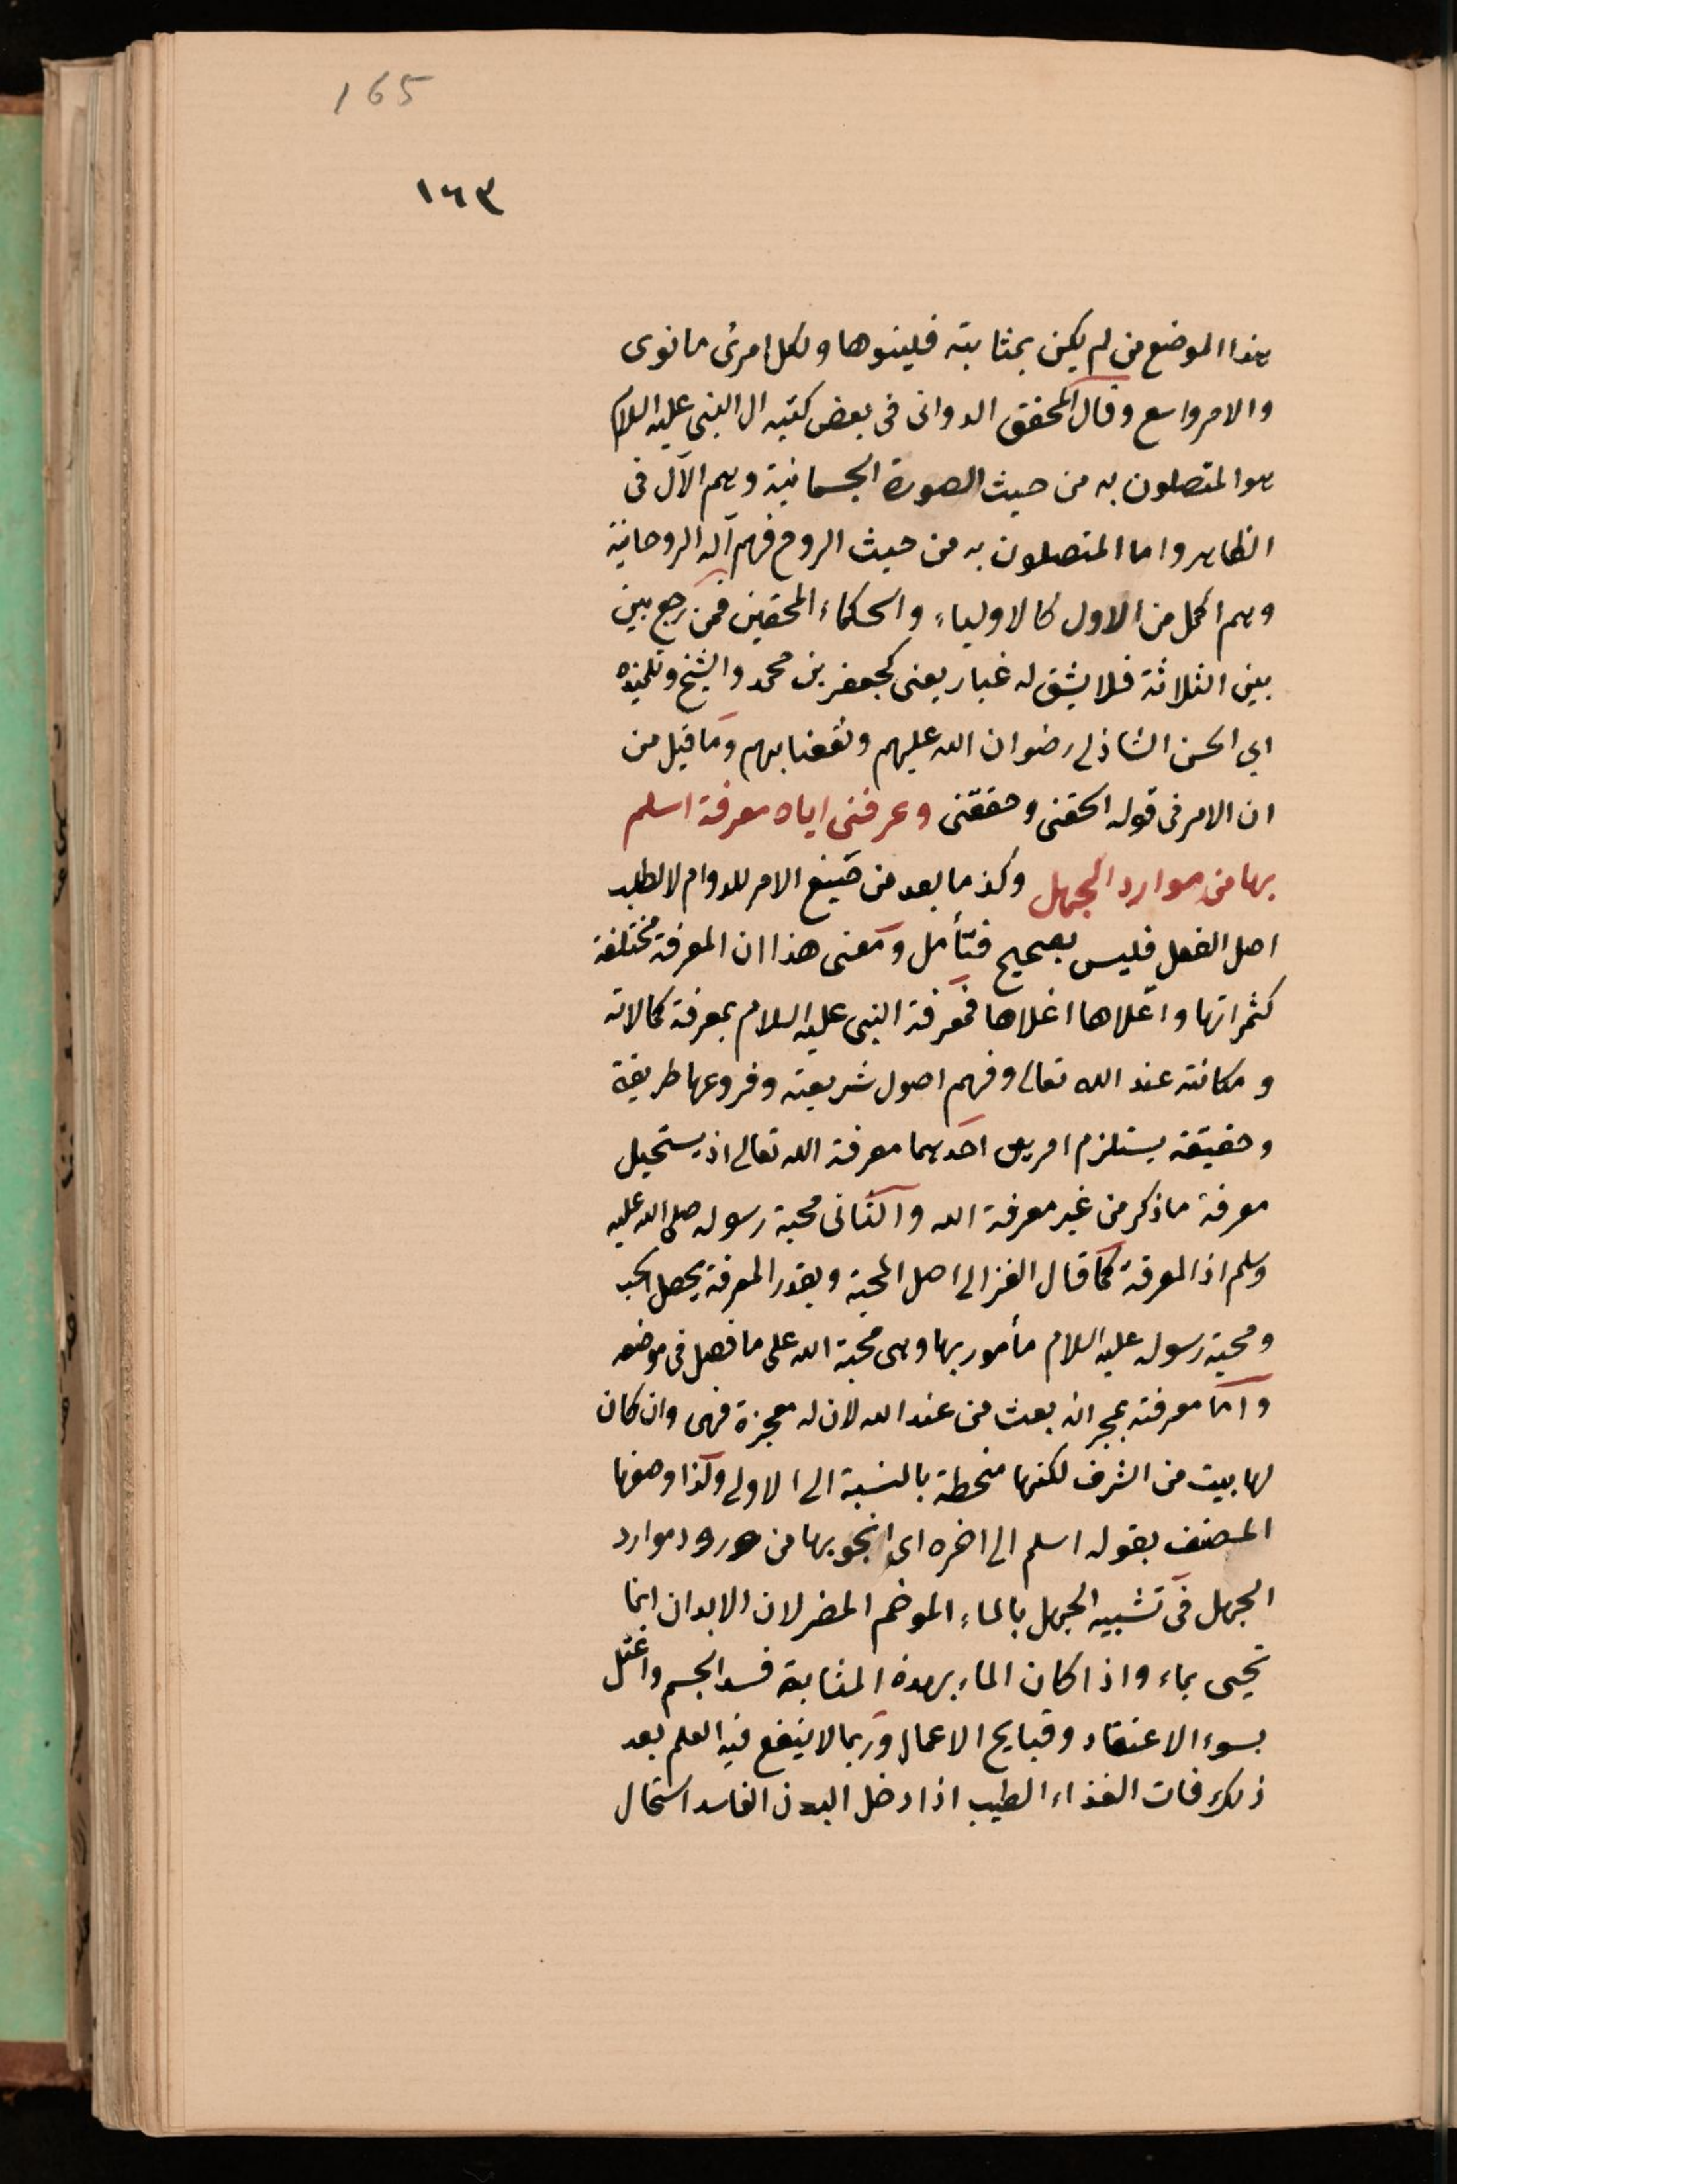 165
١٦٣
هذا الموضع من لم يكن بمثابته فلينوها ولكل امرئ ما نوى
والامر واسع وقال المحقق الدوانى فى بعض كتبه ال النبى عليه السلام
هو المتصلون به من حيث الصورة الجسمانية وهم الآل فى
الظاهر واما المتصلون به من حيث الروح فهم آله الروحانية
وهم اكمل من الاول كالاولياء والحكماء المحقين فمن رجع بين
بين الثلاثة فلا يشق له غبار يعنى كجعفر بن محمد والشيخ وتلميذه
ابي الحسن الشاذلى رضوان الله عليهم ونفعنا بهم وما قيل من
ان الامر فى قوله الحقنى وحققنى وعرفنى اياه معرفة اسلم
بها من موارد الجهل وكذ ما بعد من صيغ الامر للدوام لا لطلب
اصل الفعل فليس بصحيح فتأمل ومعنى هذا ان المعرفة مختلفة
كثمراتها واعلاها اغلاها فمعرفة النبى عليه السلام بمعرفة كمالاته
ومكانته عند الله تعالى وفهم اصول شريعته وفروعها طريقة
وحقيقة يستلزم امرين احدهما معرفة الله تعالى اذ يستحيل
معرفة ما ذكر من غير معرفة الله والثانى محبة رسوله صلى الله عليه
وسلم اذ المعرفة كما قال الغزالى اصل المحبة وبقدر المعرفة يحصل الحب
ومحبة رسوله عليه السلام مأمور بها وهى محبة الله على ما فصل فى موضعه
واما معرفته بمجرد انه بعث من عند الله لان له معجزة فهى وان كان
لها بيت من الشرف لكنها منحطة بالنسبة الى الاولى ولذا وصفها
المصنف بقوله اسلم الى اخره اى انجو بها من ورود موارد
الجهل فى تشبيه الجهل بالماء الموخم المضر لان الابدان انما
تحيى بماء واذا كان الماء بهذه المثابة فسد الجسم واعتل
بسوء الاعتقاد وقبايح الاعمال وربما لا ينفع فيه العلم بعد
ذلك فان الغذاء الطيب اذا دخل البدن الفاسد استحال